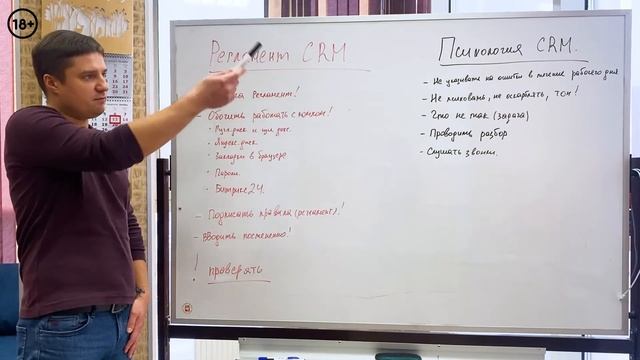 18+
Регламент CRM
на регламент!
- Обучить работать с компом!
• Гугл диск и
• Яндекс.диск
• Закладки в браузере
• Пароли.
• Битрикс 24.
- Подписать правила (регламент)!
- Вводить постепенно!
! проверять
Психология CRM.
- Не указывать на ошибки в течение рабочего дня
- Не психовать, не оскорблять, тон!
- Что не так (задача)
- Проводить разбор
- Слушать звонки.